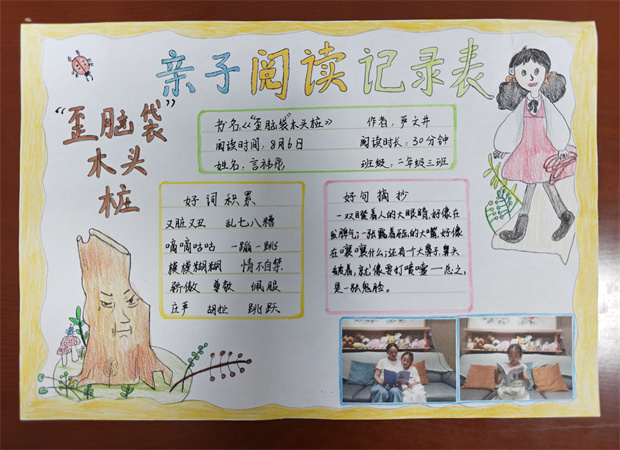 亲子阅读记录表
“歪脑袋”
木头
桩
书名《“歪脑袋”木头桩》 作者：严文井
阅读时间：8月6日 阅读时长：30分钟
姓名：言祎彤 班级：二年级三班
好词积累
又脏又丑 乱七八糟
嘀嘀咕咕 一蹦一跳
模模糊糊 情不自禁
骄傲 尊敬 佩服
庄严 胡扯 跳跃
好句摘抄
一双瞪着人的大眼睛，好像在
发脾气；一张瓢着的大嘴，好像
在嚷嚷什么；还有个大鼻子，鼻头
皱着，就像要打喷嚏——总之，
是一张鬼脸。